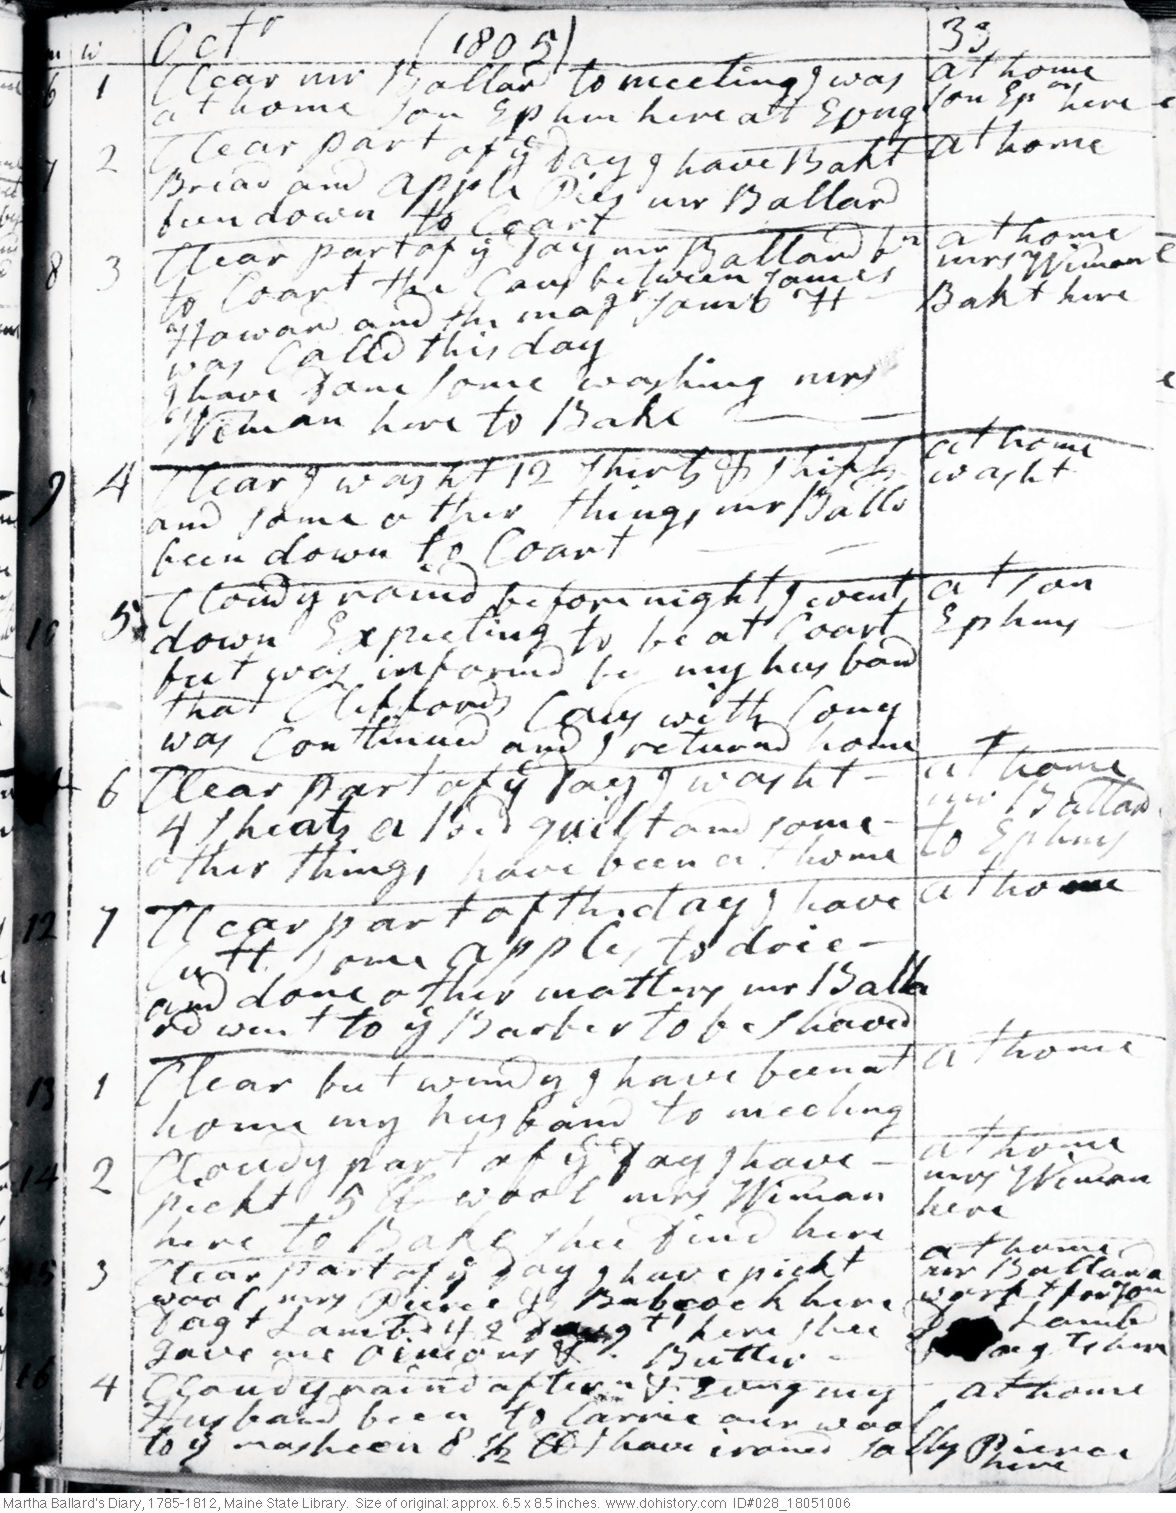 m w Octr (1805) 33
6 1 Clear mr Ballard to meeting I was at home
at home son Ephm here at Evng son Epm here
7 2 Clear part of ye day I have Bakt at home
Bread and apple Pies mr Ballard
been down to Coart
8 3 Clear part of ye day mr Ballard bn at home
to Coart the Caus between James mrs Wiman
Howard and the majr Saml H Bakt here
was Calld this day
I have done some washing mrs
Wiman here to Bake
9 4 Clear I washt 12 shirts & shifts at home
and some other things mr Balld washt
been down to Coart
10 5 Cloudy raind before night I went at son
down Expecting to be at Coart Ephms
but was informd by my husband
that Cliffords Caus with Cony
was Continued and I returnd home
6 Clear part of ye day I washt at home
4 sheats a bed quilt and some mr Ballard
other things have been at home to Ephms
12 7 Clear part of the day I have at home
Cutt some apples to drie
and done other matters mr Balla
rd went to ye Barber to be shaved
13 1 Clear but windy I have been at at home
home my husband to meeting
14 2 Cloudy part of ye day I have at home
pickt 5 lb wool mrs Wiman mrs Wiman
here to Bake shee dind here here
15 3 Clear part of ye day I have pickt at home
wool mrs Pierce & Babcock here mr Ballard
Dagt Lambd & 2 here shee workt for son
gave me oinions & Butter Lambd
here
16 4 Cloudy raind aftern & Evng my at home
Husband been to Carrie our wool
to ye masheen 8 1/2 lb I have ironed Sally Pierce
here
Martha Ballard's Diary, 1785-1812, Maine State Library. Size of original: approx. 6.5 x 8.5 inches. www.dohistory.com ID#028_18051006